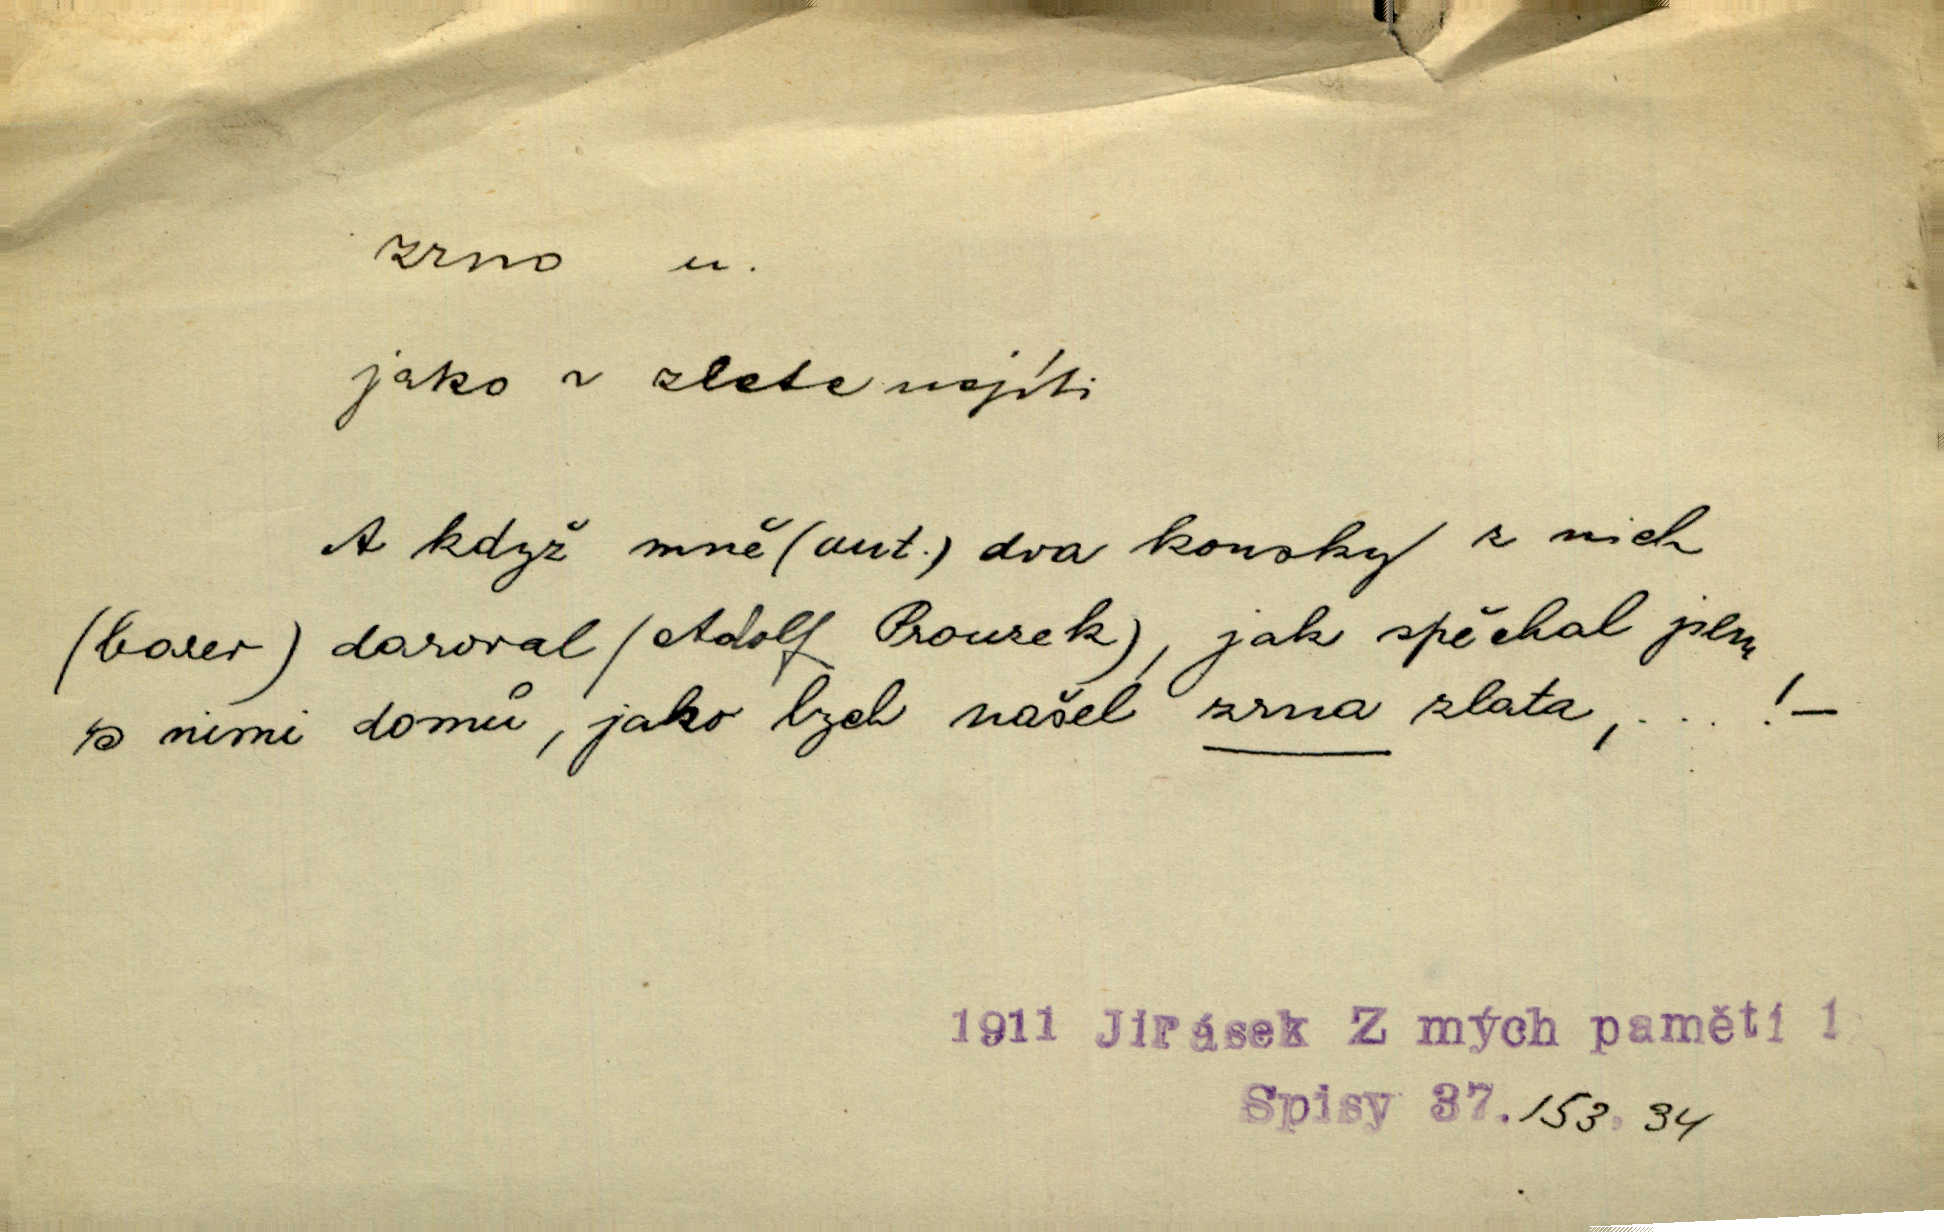 zrno n.
jako z zlata najíti
A když mně (aut.) dva kousky z nich
(barev) daroval (Adolf Prousek), jak spěchal jsem
s nimi domů, jako bych našel zrna zlata, ... ! –
1911 Jirásek Z mých pamětí 1
Spisy 37. 153, 34